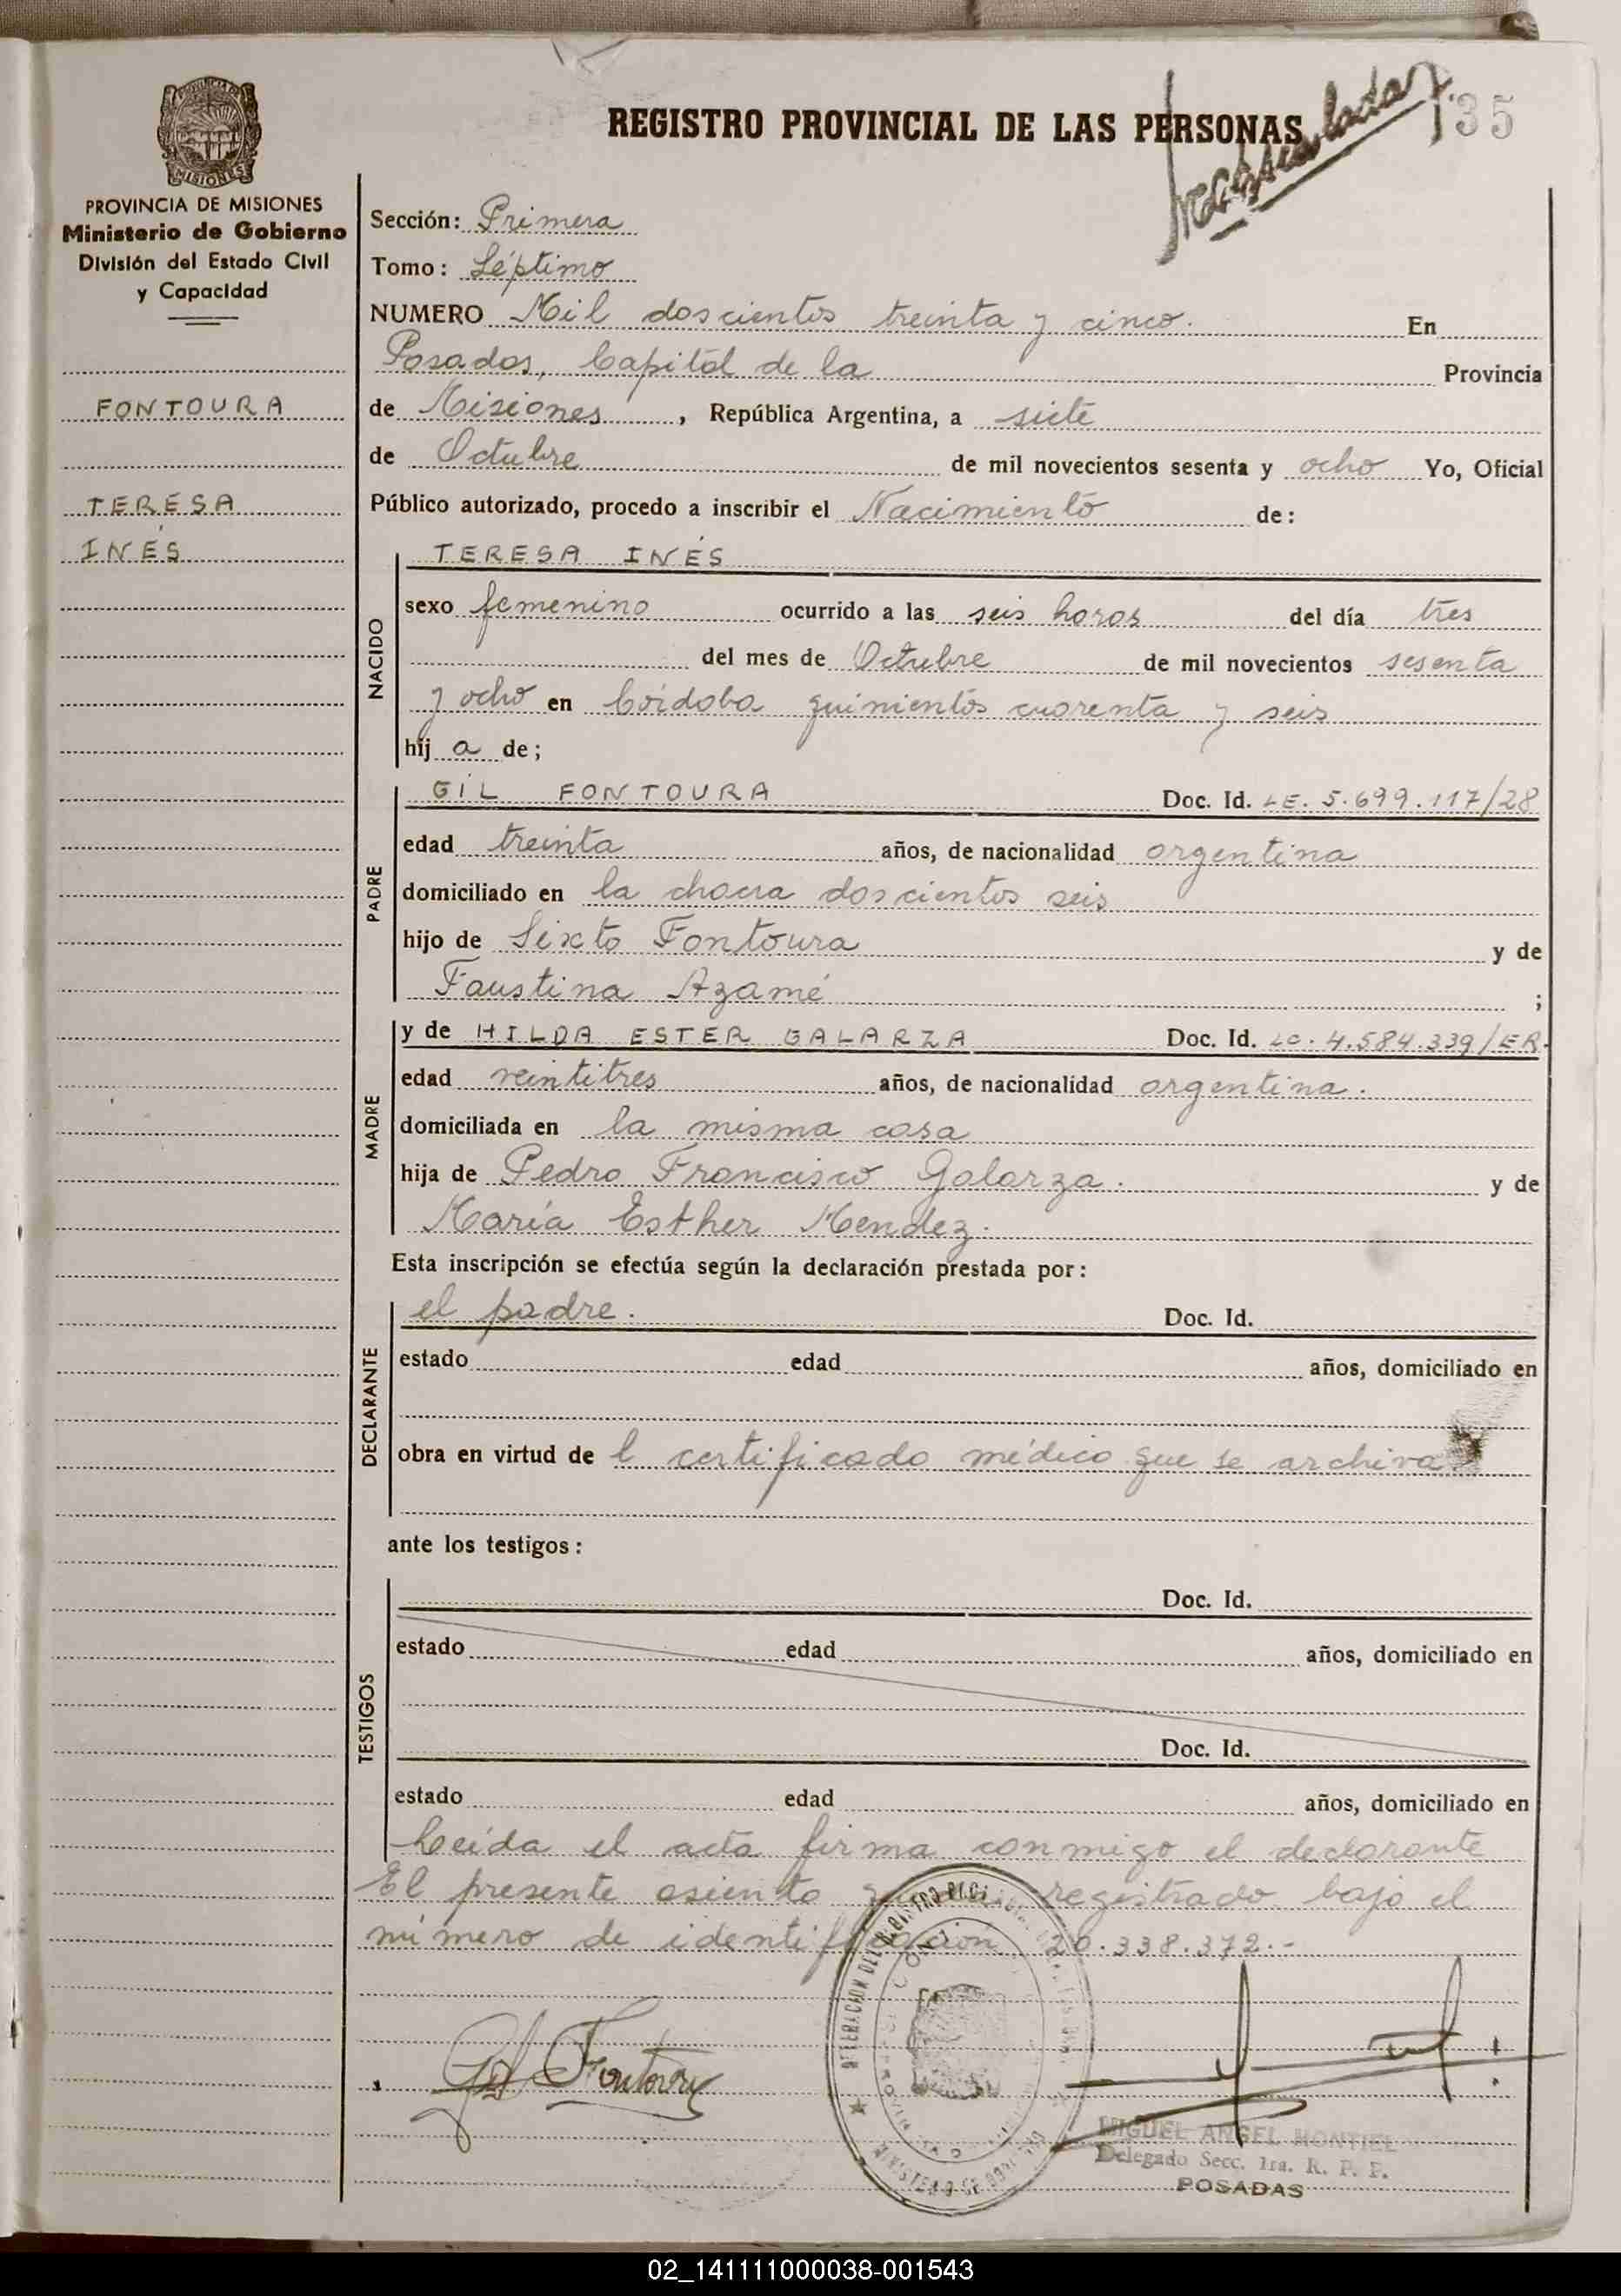 REGISTRO PROVINCIAL DE LAS PERSONAS
35
MISIONES
PROVINCIA DE MISIONES
Ministerio de Gobierno
División del Estado Civil
y Capacidad
FONTOURA
TERESA
INÉS
Sección: Primera
Tomo: Séptimo
NUMERO Mil doscientos treinta y cinco. En
Posadas, Capital de la Provincia
de Misiones, República Argentina, a siete
de Octubre de mil novecientos sesenta y ocho Yo, Oficial
Público autorizado, procedo a inscribir el Nacimiento de:
NACIDO
TERESA INÉS
sexo femenino ocurrido a las seis horas del día tres
del mes de Octubre de mil novecientos sesenta
y ocho en Córdoba quinientos cuarenta y seis
hij a de;
PADRE
GIL FONTOURA Doc. Id. LE. 5.699.117/28
edad treinta años, de nacionalidad argentina
domiciliado en la chacra doscientos seis
hijo de Sixto Fontoura y de
Faustina Azamé ;
MADRE
y de HILDA ESTER GALARZA Doc. Id. LC. 4.584.339/ER.
edad veintitres años, de nacionalidad argentina.
domiciliada en la misma casa
hija de Pedro Francisco Galarza. y de
María Esther Mendez.
Esta inscripción se efectúa según la declaración prestada por:
DECLARANTE
el padre. Doc. Id.
estado edad años, domiciliado en
obra en virtud de l certificado médico que se archiva
ante los testigos:
TESTIGOS
Doc. Id.
estado edad años, domiciliado en
Doc. Id.
estado edad años, domiciliado en
Leída el acta firma conmigo el declarante
El presente asiento registrado bajo el
número de identificación 20.338.372.-
Gil Fontoura
MIGUEL ANGEL MONTIEL
Delegado Secc. 1ra. R. P. P.
POSADAS
02_141111000038-001543